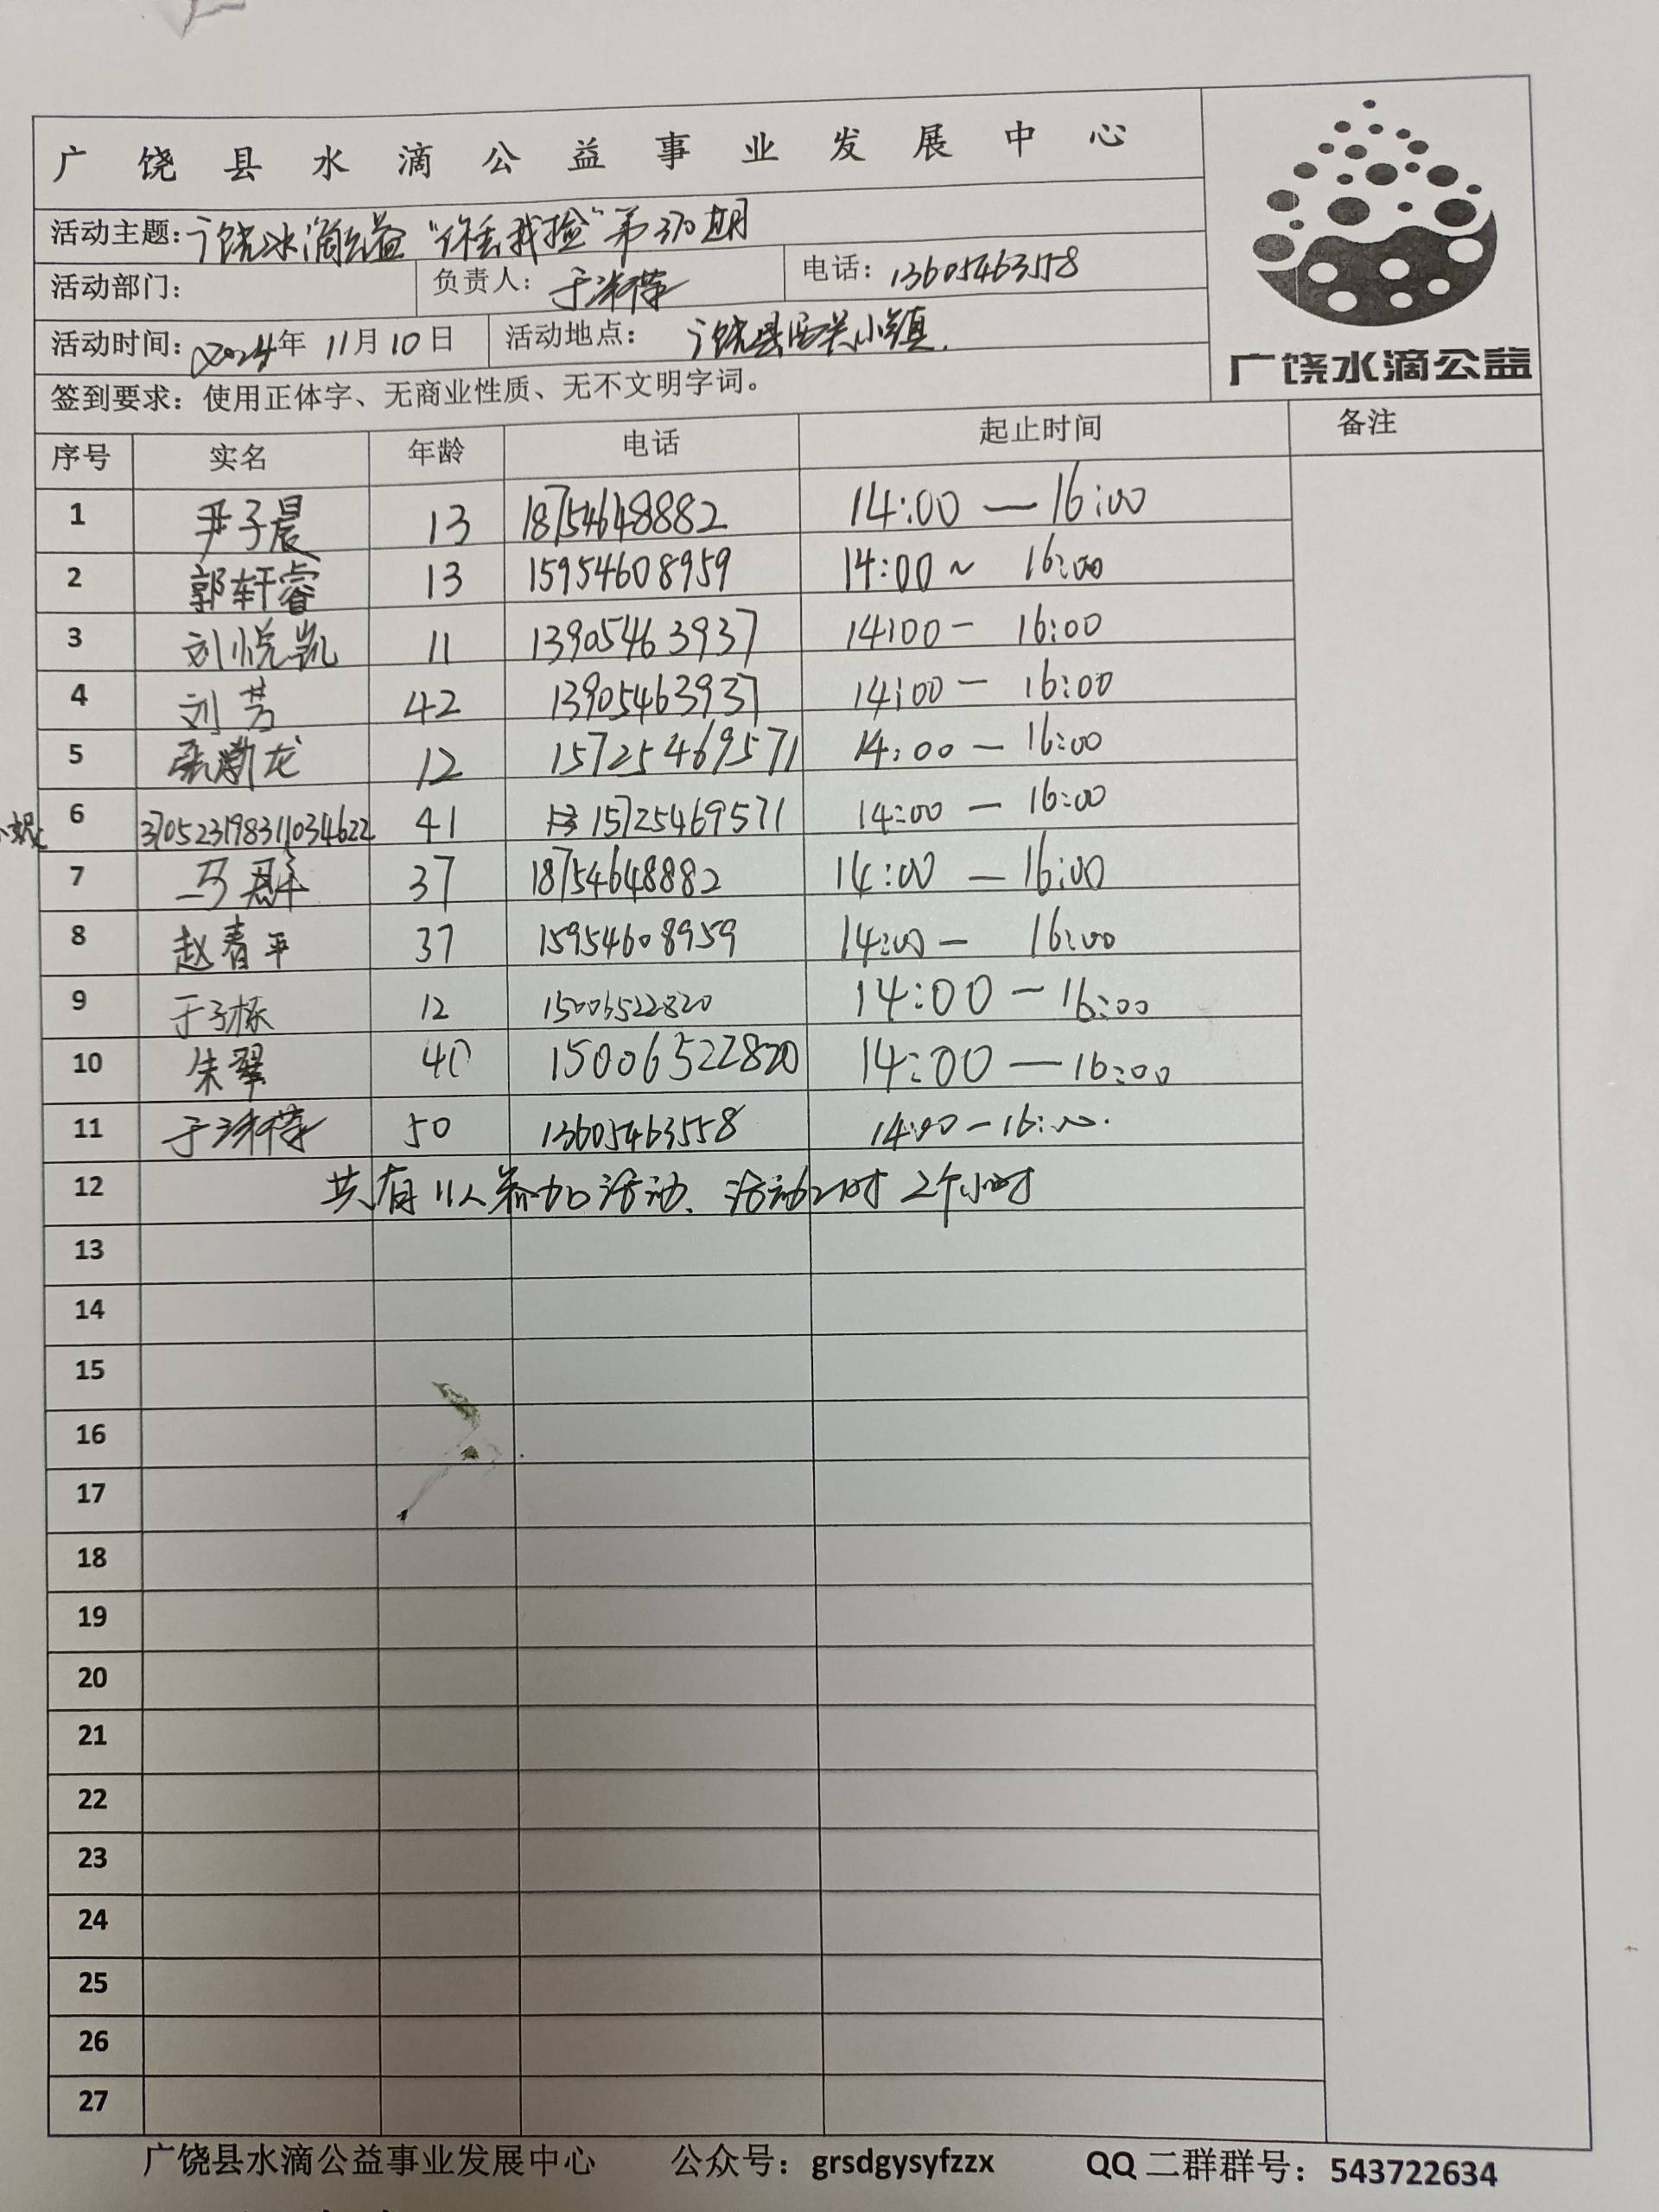 广饶县水滴公益事业发展中心
活动主题：广饶水滴公益“你丢我捡”第370期
活动部门： 负责人： 电话：13605463558
活动时间：2024年11月10日 活动地点：广饶县西关小镇.
签到要求：使用正体字、无商业性质、无不文明字词。
广饶水滴公益
序号 实名 年龄 电话 起止时间 备注
1 尹子晨 13 18754648882 14:00 — 16:00
2 郭轩睿 13 15954608959 14:00 ~ 16:00
3 刘悦凯 11 13905463937 14:00 - 16:00
4 刘芳 42 13905463937 14:00 - 16:00
5 张渤龙 12 15725469571 14:00 - 16:00
6 370523198311034622 41 15725469571 14:00 - 16:00
7 马君 37 18754648882 14:00 - 16:00
8 赵春平 37 15954608959 14:00 - 16:00
9 于子栋 12 15006522820 14:00 - 16:00
10 朱翠 40 15006522820 14:00 — 16:00
11 50 13605463558 14:00 - 16:00.
12 共有11人参加活动、活动时 2个小时
13
14
15
16
17
18
19
20
21
22
23
24
25
26
27
广饶县水滴公益事业发展中心 公众号：grsdgysyfzzx QQ二群群号：543722634